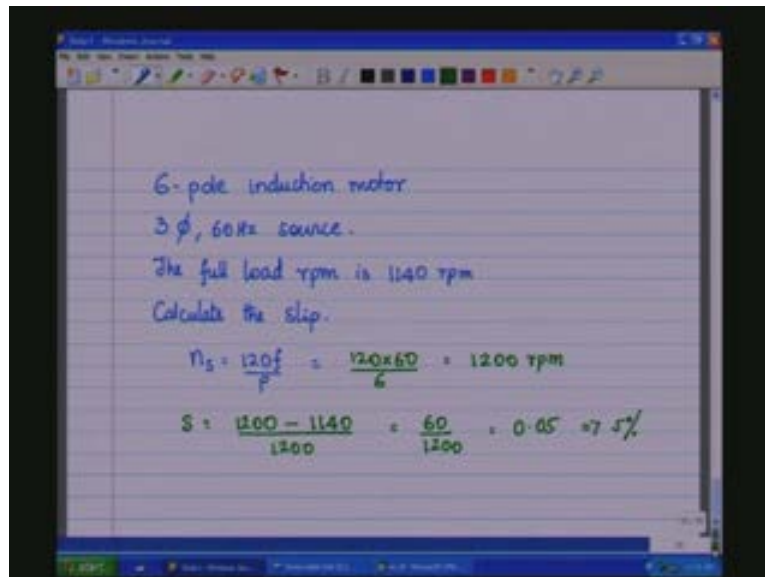 6-pole induction motor
3ϕ, 60Hz source.
The full load rpm is 1140 rpm
Calculate the slip.
ns = 120f/P = 120x60/6 = 1200 rpm
S = 1200 - 1140/1200 = 60/1200 = 0.05 => 5%